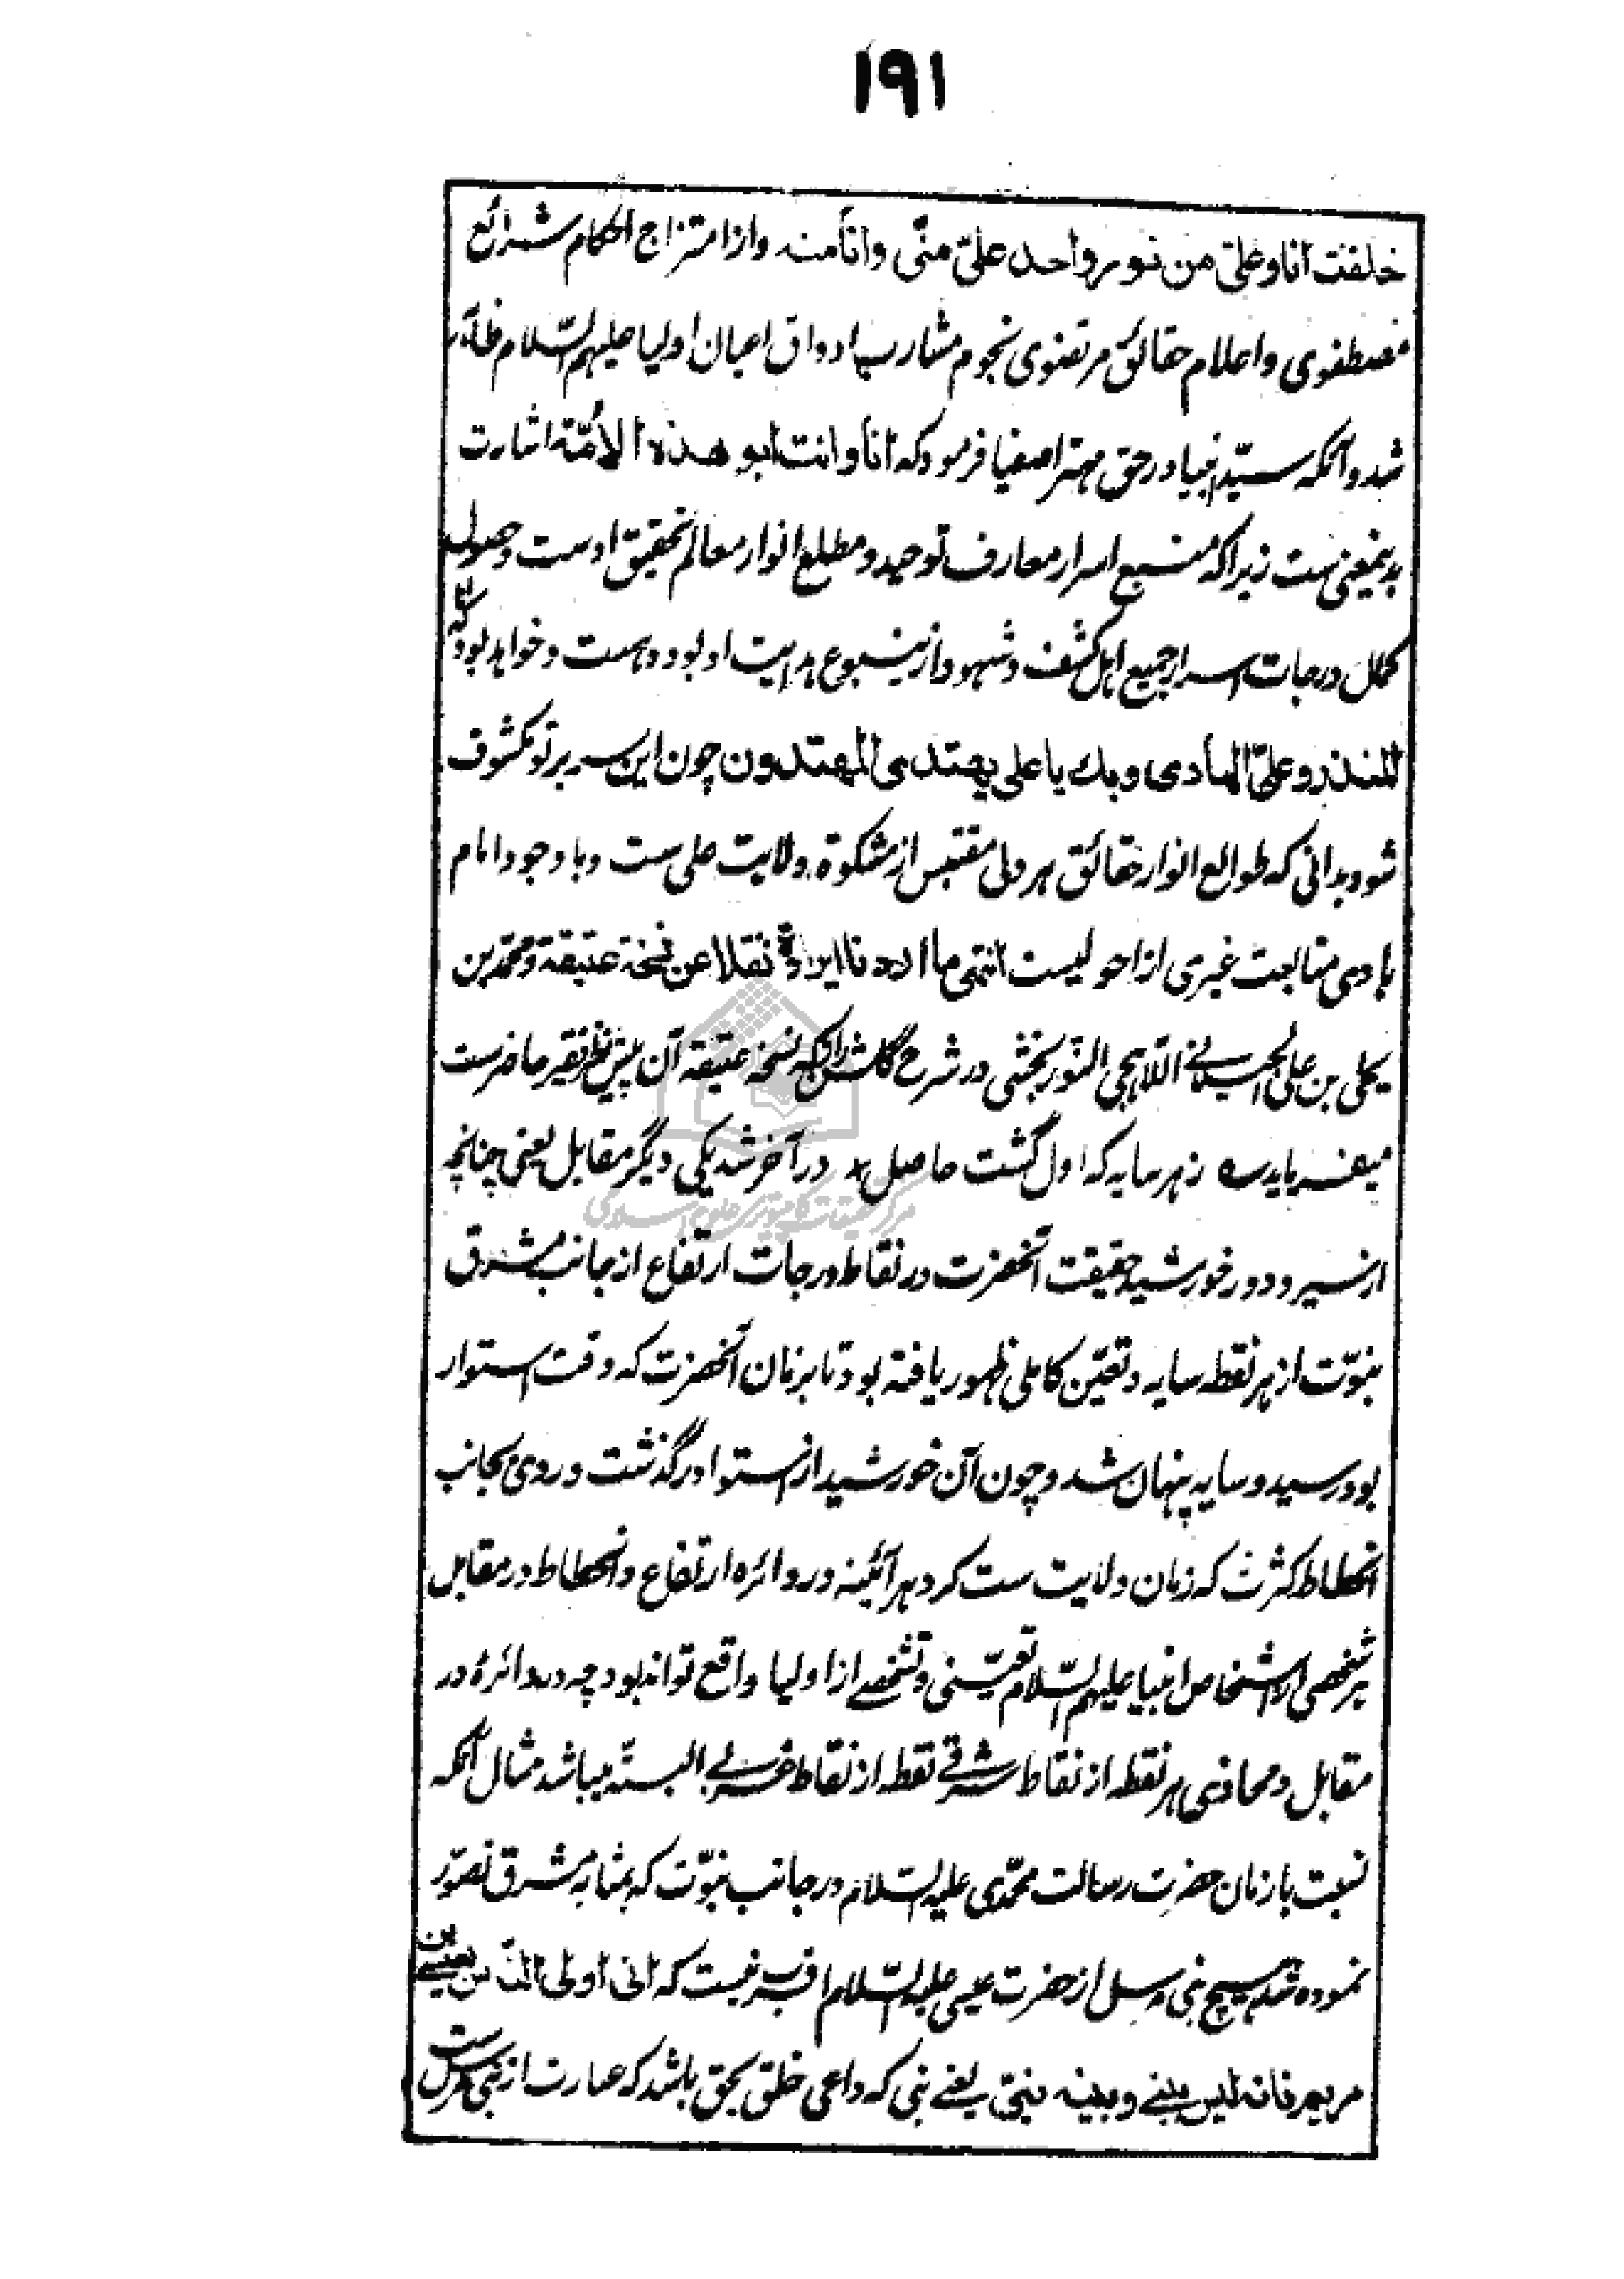 ۱۹۱
خلقت انا و علیّ من نور واحد علیّ منّی و انا منه و از امتزاج احکام شرائع
مصطفوی و اعلام حقائق مرتضوی نجوم مشارب اذواق اعیان اولیا علیهم السّلام ظاهر
شد و آنکه سیّد انبیا در حق مهتر اصفیا فرمود که انا و انت ابو هذه الامّة اشارت
بدینمعنی ست زیراکه منبع اسرار معارف توحید و مطلع انوار معالم تحقیق اوست و حصول
کمال درجات اسرار جمیع اهل کشف و شهود از ینبوع هدایت او بود و هست و خواهد بود که انا
المنذر و علیّ الهادی و بك یا علی یهتدی المهتدون چون این سر بر تو مکشوف
شود بدانی که طوالع انوار حقائق هر ولی مقتبس از مشکوة ولایت علی ست و با وجود امام
هادی متابعت غیری از احولیست انتهی ما اردنا ایراده نقلا عن نسخة عتیقة و محمّد بن
یحیی بن علی الجیلانی اللّاهجی النّوربخشی در شرح گلشن راز که نسخه عتیقه آن پیش نظر فقیر حاضرست
میفرماید ز هر سایه که اول گشت حاصل * در آخر شد یکی دیگر مقابل یعنی چنانچه
از سیر و دور خورشید حقیقت آنحضرت در نقاط درجات ارتفاع از جانب مشرق
نبوّت از هر نقطه سایه و تعیّن کاملی ظهور یافته بود تا بزمان آنحضرت که وقت استوار
بود رسید و سایه پنهان شد و چون آن خورشید از استوا درگذشت و روی بجانب
انحطاط کثرت که زمان ولایت ست کرد هرآئینه در دائره ارتفاع و انحطاط در مقابل
هر شخصی از اشخاص انبیا علیهم السّلام تعیّنی و تشخصے از اولیا واقع تواند بود چه در دائرهٔ در
مقابل و محاذی هر نقطه از نقاط شرقے نقطه از نقاط غربے البتّه میباشد مثال آنکه
نسبت با زمان حضرت رسالت محمّدی علیه السّلام در جانب نبوّت که بمثابه مشرق تصوّر
نموده شد هیچ نبی مرسل از حضرت عیسی علیه السّلام اقرب نیست که انی اولی النّاس بعیسے ابن
مریم فانه لیس بینے و بینه نبیّ یعنے نبی که داعی خلق بحق باشد که عبارت از نبی مرسل ست
مرکز تحقیقات کامپیوتری علوم اسلامی